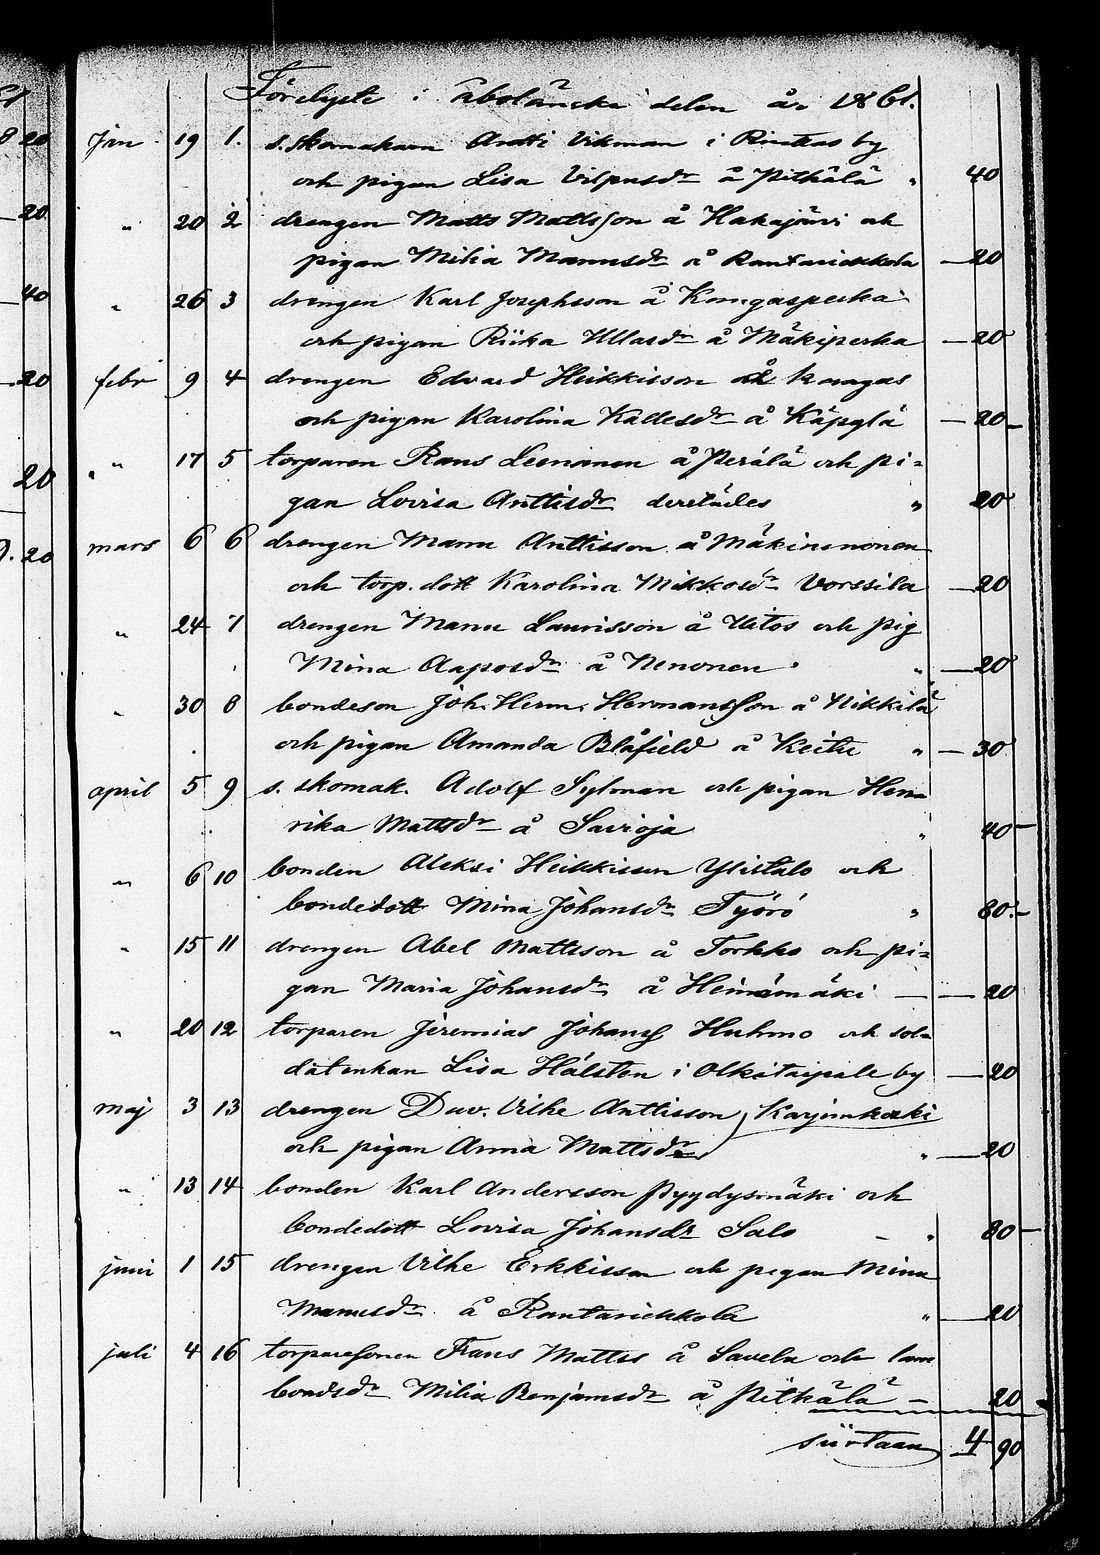 Förelyste i åboländska delen år 1861.
Jan 19 1. s. skomakaren Antti Vikman i Rinkas by
och pigan Lisa Vilpusdr å Pitkälä " 40
" 20 2 drengen Matts Mattsson å Hakajärvi och
pigan Milia Mannusdr å Rantavickkola — 20
" 26 3 drengen Karl Josephsson å Komgasperka
och pigan Riika Ullasdr å Mäkiperka — 20
febr 9 4 drengen Edvard Heikkisson å Kangas
och pigan Karolina Kallesdr å Käpylä — 20 —
" 17 5 torparen Rans Leenanen å Perälä och pi=
gan Lovisa Anttisdr derstädes " 20
mars 6 6 drengen Manu Anttisson å Mäkinenonen
och torp. dott Karolina Mikkosdr Vorssila — 20
" 24 7 drengen Manu Laurisson å Uitos och pig
Mina Aaposdr å Nenonen " — 20
" 30 8 bondeson Joh. Herm. Hermansson å Nikkilä
och pigan Amanda Blåfield å Keitu " — 30
april 5 9 s. skomak. Adolf Sylman och pigan Hen
rika Mattsdr å Savioja " 40 —
" 6 10 bonden Aleksi Heikkisson Ylistalo och
bondedott Mina Johansdr Työrö " 80 —
" 15 11 drengen Abel Mattsson å Torkko och pi=
gan Maria Johansdr å Heinämäki — — 20
" 20 12 torparen Jeremias Johanss Huhmo och sol=
datenkan Lisa Hålsten i Olkitaipale by — 20
maj 3 13 drengen Dav. Vilhe Anttisson Karjinkoski
och pigan Anna Mattsdr " — 20
" 13 14 bonden Karl Andersson Pyydysmäki och
bondedott Lovisa Johansdr Salo — " 80 —
juni 1 15 drengen Vilhe Erkkisson och pigan Mina
Manusdr å Rantavickkola " — 20
juli 4 16 torparesonen Frans Matts å Savela och lam
bondsdr Milia Benjamsdr å Pitkälä — 20
siirtaan 4 90
20
20
40
20
20
20